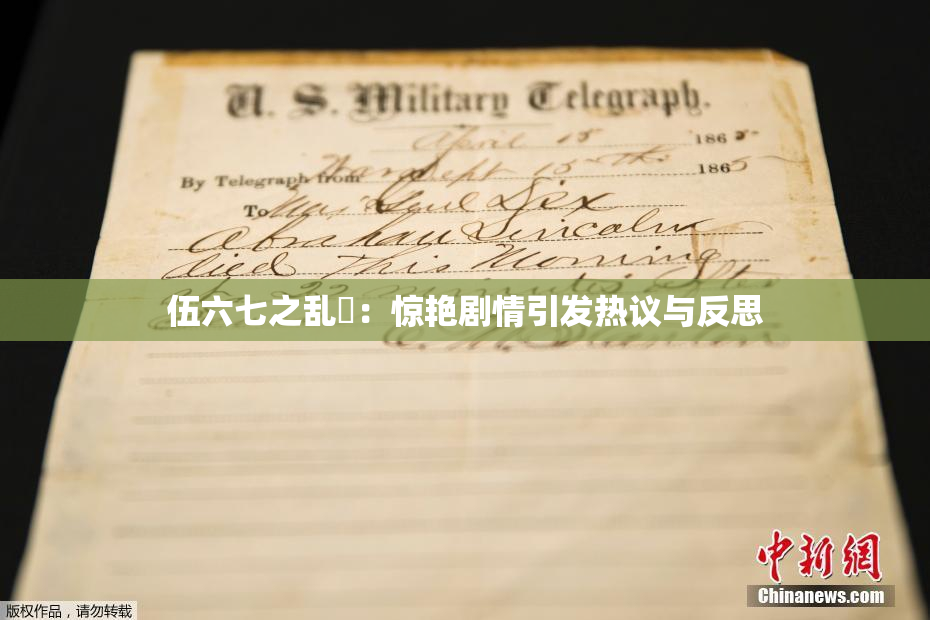 U. S. Military Telegraph.
April 15 1865
By Telegraph from War Dept 15th 1865
To Maj Genl Dix
Abraham Lincoln
died This Morning
at 22 minutes after
伍六七之乱：惊艳剧情引发热议与反思
E. M. Stanton
中新网
Chinanews.com
版权作品，请勿转载